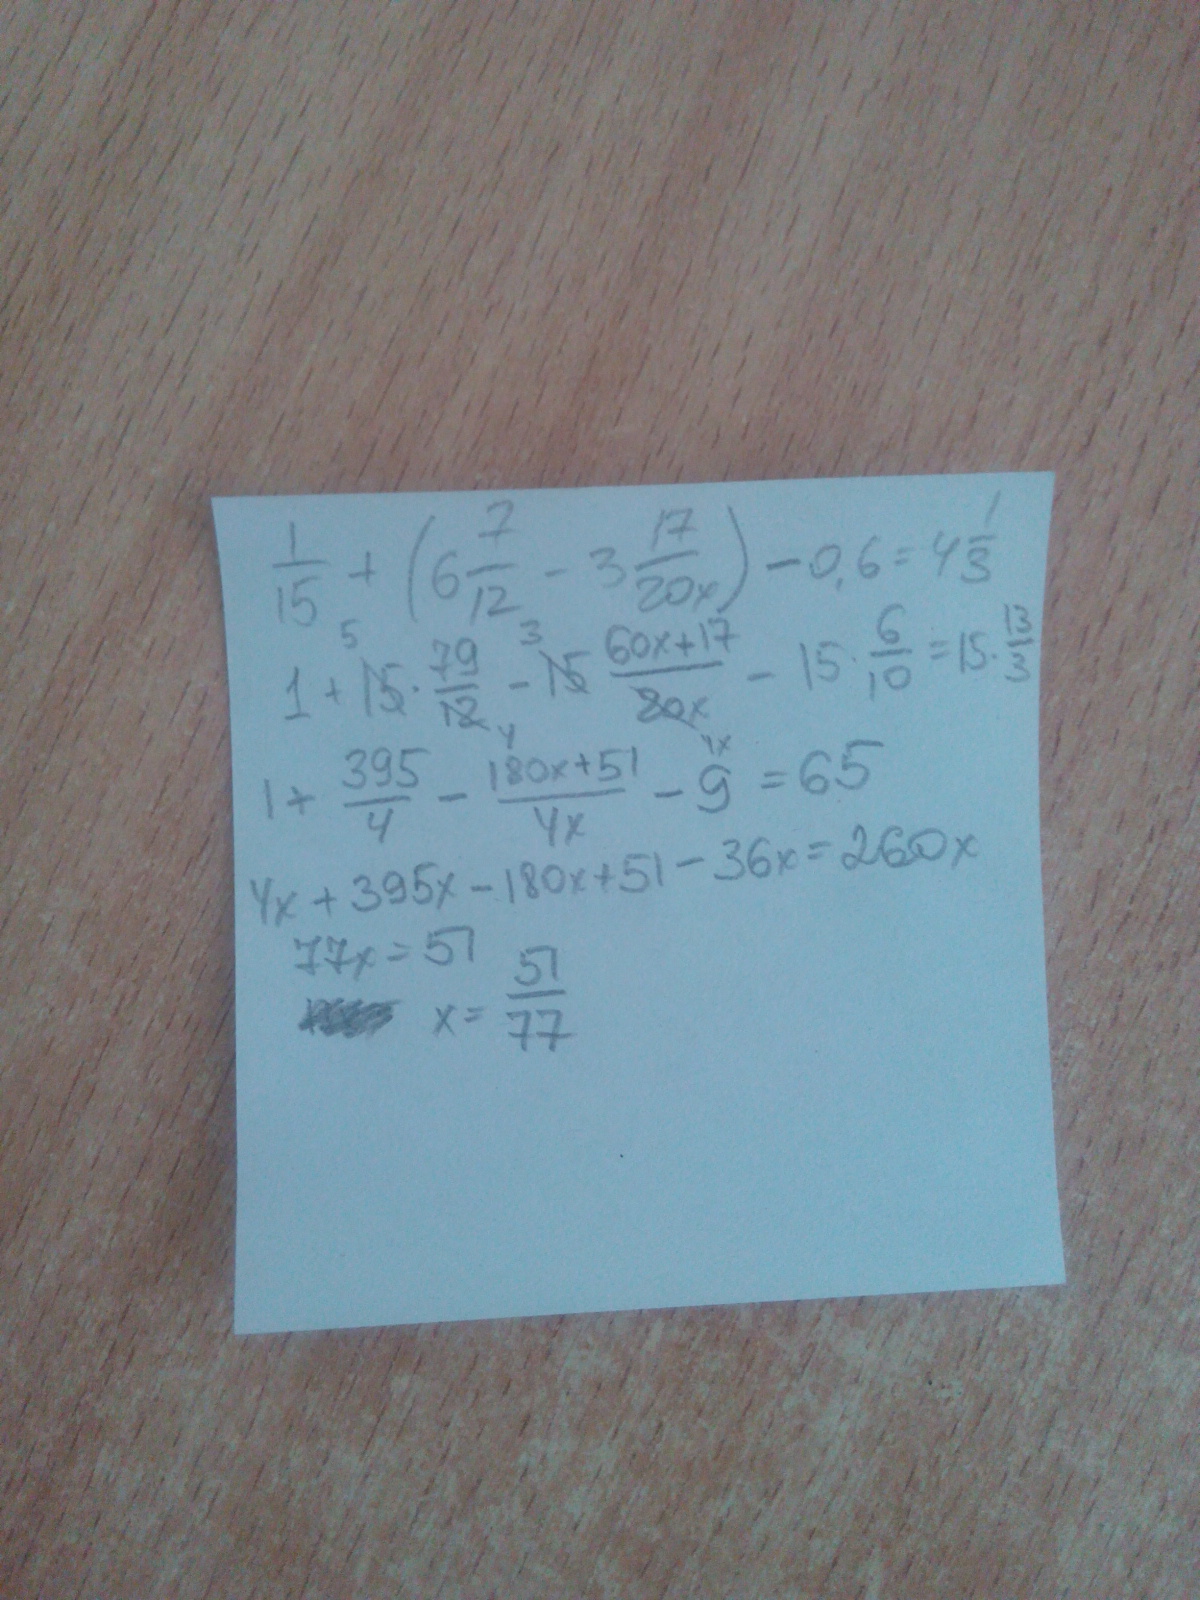 1/15 + (6 7/12 - 3 17/20x) - 0,6 = 4 1/3
1 + 15 5 · 79/12 4 - 15 3 60x+17/20x 4x - 15 · 6/10 = 15 · 13/3
1 + 395/4 - 180x+51/4x - 9 = 65
4x + 395x - 180x + 51 - 36x = 260x
77x = 51
x = 51/77